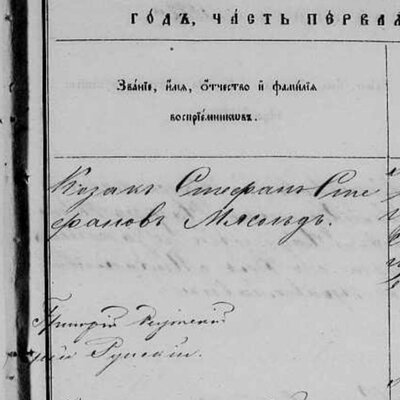 ГО́ДЪ, ЧА́СТЬ ПЕ́РВАЯ
Зва́нїе, и҆́мѧ, ѻ҆́тчество и҆ фами́лїѧ
воспрїе́мникѡвъ.
Козакъ Стефанъ Сте
фановъ Мясоѣдъ.
Григорій